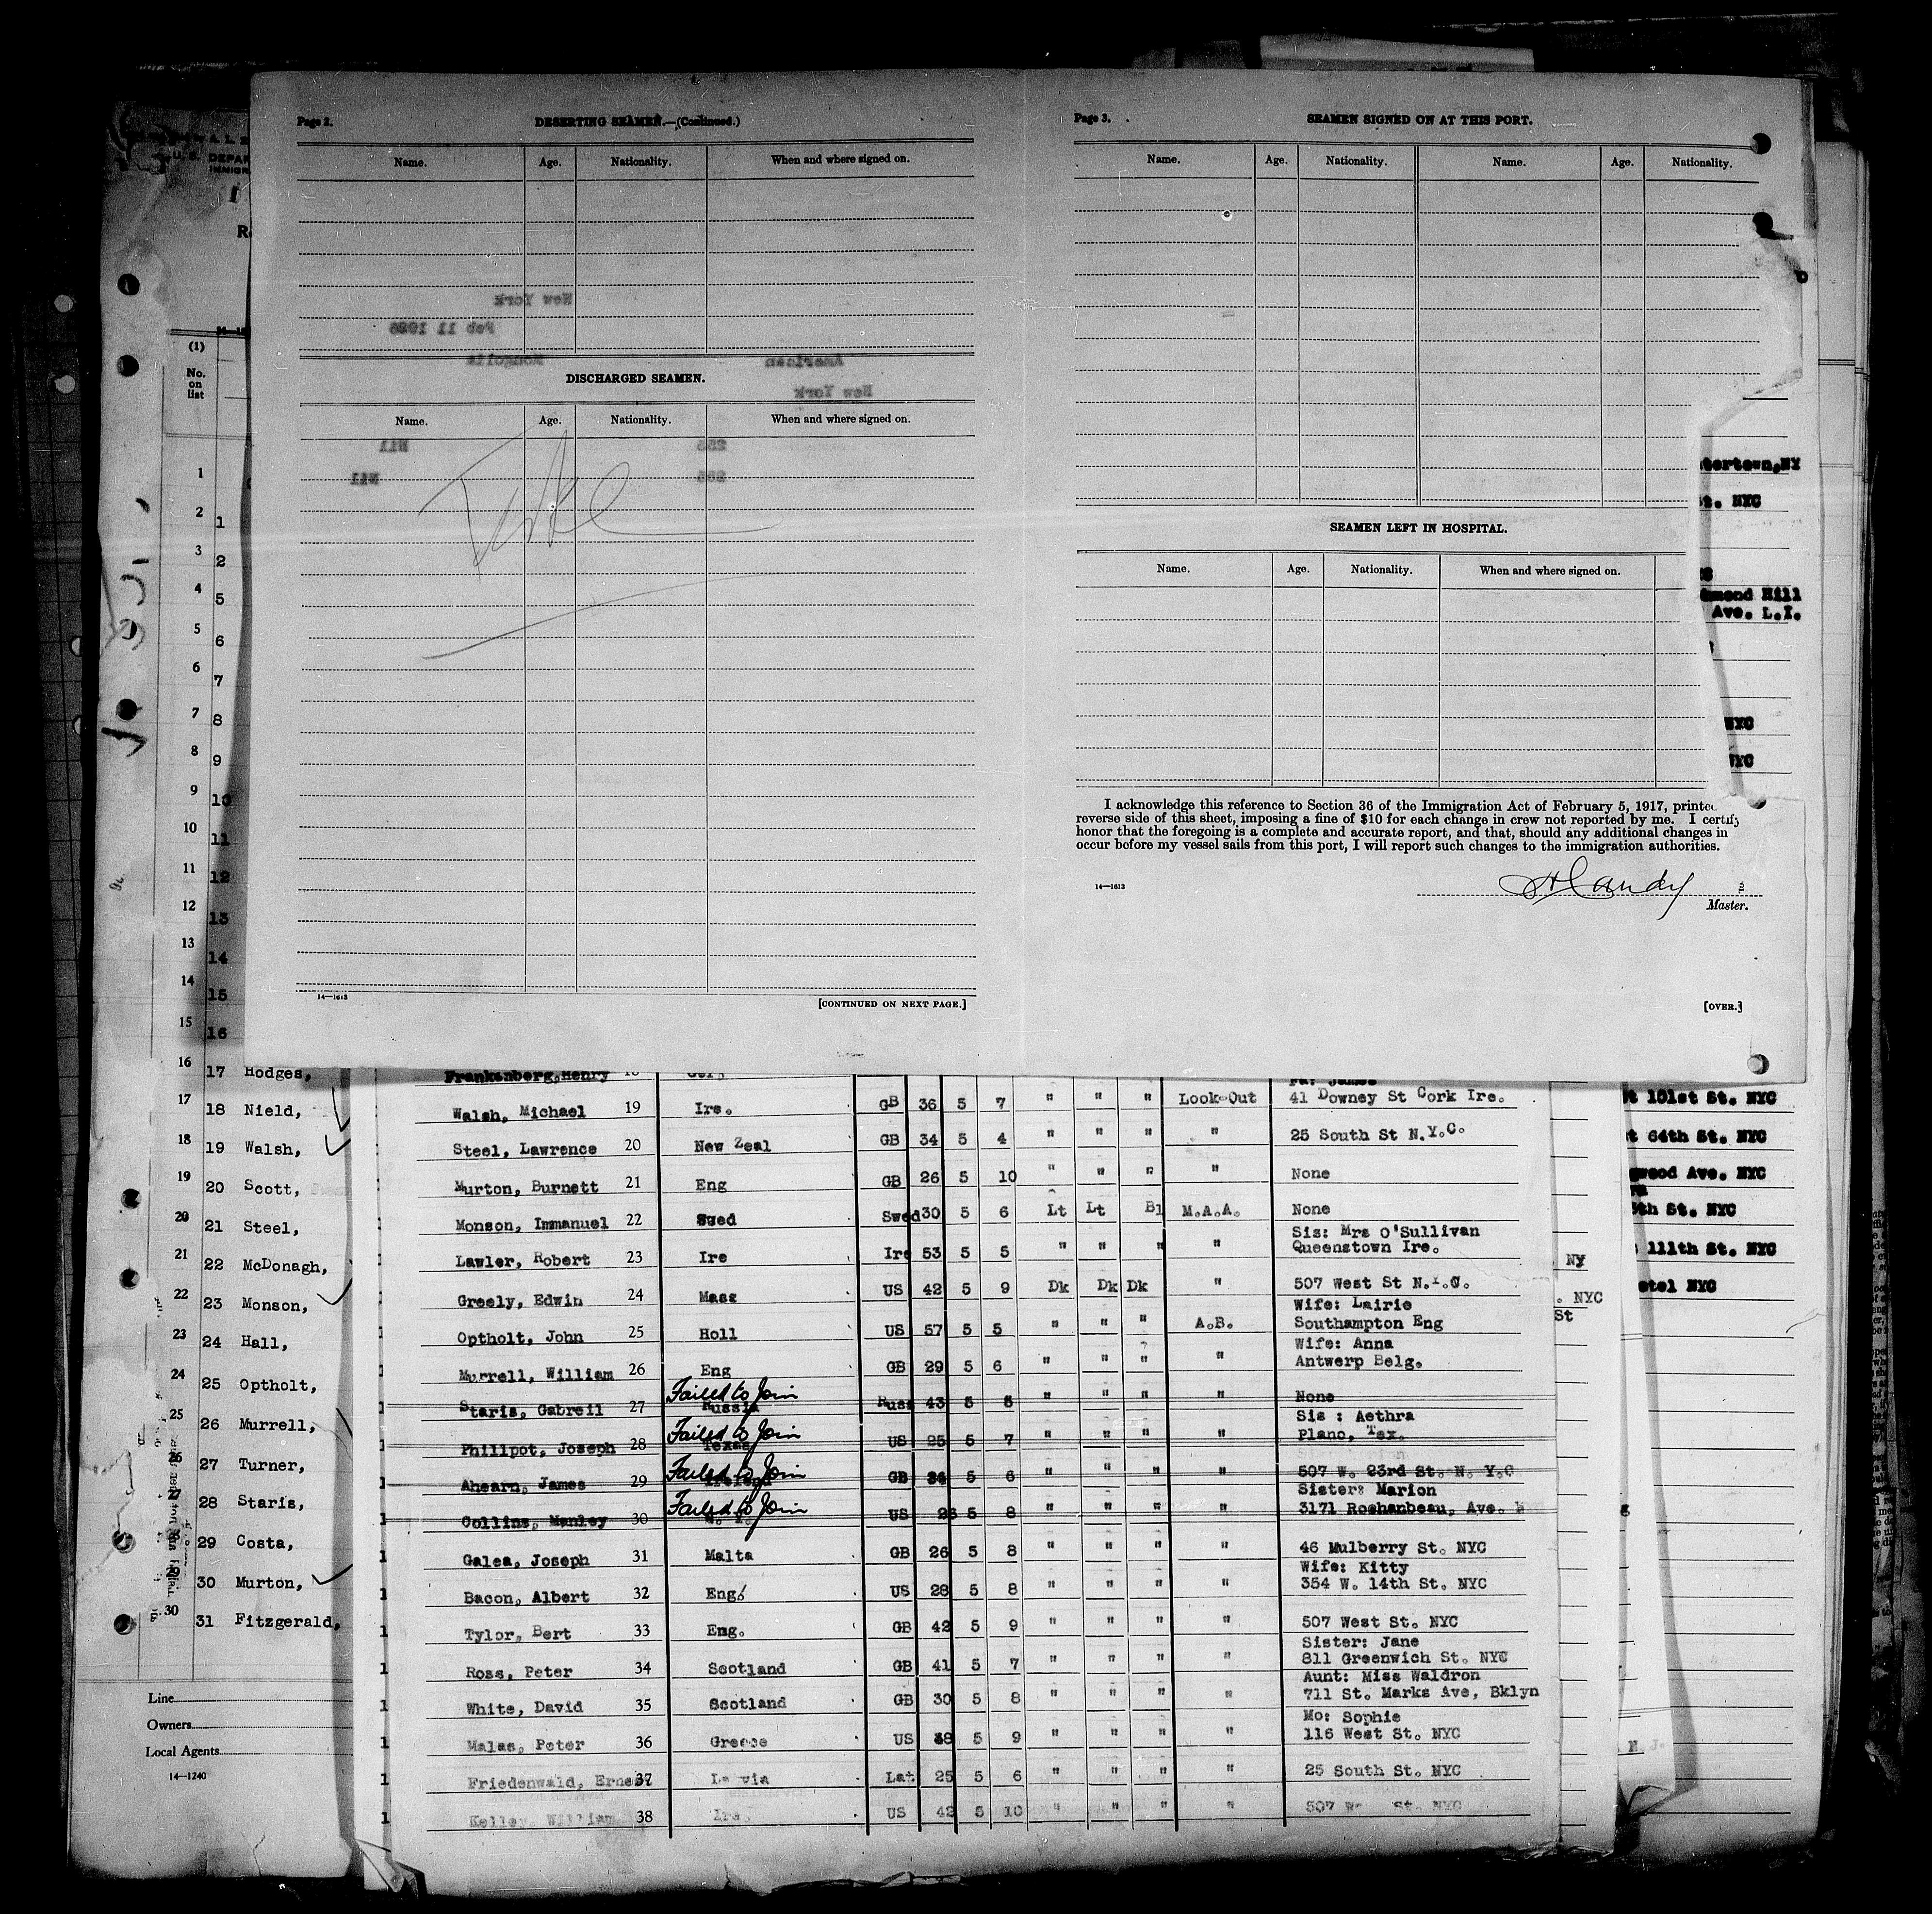 Page 2.
DESERTING SEAMEN.—(Continued.)
Name. Age. Nationality. When and where signed on.
New York
Feb 11 1926
Mongolia American
New York
DISCHARGED SEAMEN.
Name. Age. Nationality. When and where signed on.
Nil 255
Nil 255
14—1613
[CONTINUED ON NEXT PAGE.]
Page 3.
SEAMEN SIGNED ON AT THIS PORT.
Name. Age. Nationality. Name. Age. Nationality.
SEAMEN LEFT IN HOSPITAL.
Name. Age. Nationality. When and where signed on.
I acknowledge this reference to Section 36 of the Immigration Act of February 5, 1917, printed
reverse side of this sheet, imposing a fine of $10 for each change in crew not reported by me. I certify
honor that the foregoing is a complete and accurate report, and that, should any additional changes in
occur before my vessel sails from this port, I will report such changes to the immigration authorities.
14—1613
Master.
[OVER.]
U.S. DEPAR
IMMIGR
(1)
No.
on
list
1
2 1
3 2
4 5
5 6
6 7
7 8
8 9
9 10
10 11
11 12
12 13
13 14
14 15
15 16
16 17 Hodges,
17 18 Nield,
18 19 Walsh,
19 20 Scott,
20 21 Steel,
21 22 McDonagh,
22 23 Monson,
23 24 Hall,
24 25 Optholt,
25 26 Murrell,
26 27 Turner,
27 28 Staris,
28 29 Costa,
29 30 Murton,
30 31 Fitzgerald,
Line
Owners
Local Agents
14—1240
Frankenberg, Henry 18
Walsh, Michael 19 Ire. GB 36 5 7 " " " Look-Out 41 Downey St Cork Ire.
Steel, Lawrence 20 New Zeal GB 34 5 4 " " " " 25 South St N.Y.C.
Murton, Burnett 21 Eng GB 26 5 10 " " " " None
Monson, Immanuel 22 Swed Swed 30 5 6 Lt Lt Bl M.A.A. None
Sis: Mrs O'Sullivan
Lawler, Robert 23 Ire Ire 53 5 5 " " " " Queenstown Ire.
Greely, Edwin 24 Mass US 42 5 9 Dk Dk Dk " 507 West St N.Y.C.
Wife: Lairie
Optholt, John 25 Holl US 57 5 5 " " " A.B. Southampton Eng
Wife: Anna
Murrell, William 26 Eng GB 29 5 6 " " " " Antwerp Belg.
Failed to Join
Staris, Gabreil 27 Russia Russ 43 5 8 " " " " None
Failed to Join Sis : Aethra
Phillpot, Joseph 28 Texas US 25 5 7 " " " " Plano, Tex.
Failed to Join
Ahearn, James 29 Ireland GB 34 5 6 " " " " 507 W. 23rd St. N. Y.C
Failed to Join Sister: Marion
Collins, Manley 30 US 26 5 8 " " " " 3171 Rochanbeau, Ave.
Galea, Joseph 31 Malta GB 26 5 8 " " " " 46 Mulberry St. NYC
Wife: Kitty
Bacon, Albert 32 Eng. US 28 5 8 " " " " 354 W. 14th St. NYC
Tylor, Bert 33 Eng. GB 42 5 9 " " " " 507 West St. NYC
Sister: Jane
Ross, Peter 34 Scotland GB 41 5 7 " " " " 811 Greenwich St. NYC
Aunt: Miss Waldron
White, David 35 Scotland GB 30 5 8 " " " " 711 St. Marks Ave, Bklyn
Mo: Sophie
Malas, Peter 36 Greece US 38 5 9 " " " " 116 West St. NYC
Friedenwald, Ernest 37 Latvia Lat 25 5 6 " " " " 25 South St. NYC
Kelley, William 38 Ire. US 42 5 10 " " " " 507 St. NYC
tertown, NY
St. NYC
mond Hill
Ave. L.I.
NYC
NYC
t 101st St. NYC
t 64th St. NYC
gwood Ave. NYC
5th St. NYC
111th St. NYC
otel NYC
NY
. NYC
St
N. J.